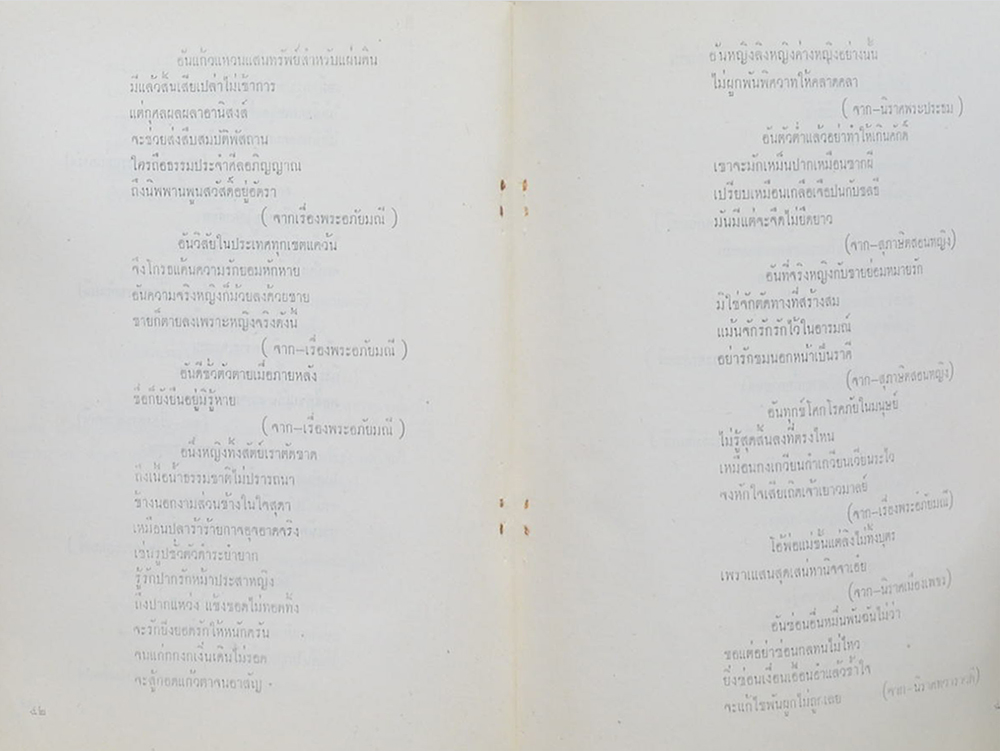 อันแก้วแหวนแสนทรัพย์สำหรับแผ่นดิน
มีแล้วสิ้นเสียเปล่าไม่เข้าการ
แต่กุศลผลผลาอานิสงส์
จะช่วยส่งสืบสมบัติพัสถาน
ใครถือธรรมประจำศีลอภิญญาณ
ถึงนิพพานพูนสวัสดิ์อยู่อัตรา
( จากเรื่องพระอภัยมณี )
อันวิสัยในประเทศทุกเขตแคว้น
จึงโกรธแค้นความรักยอมหักหาย
อันความจริงหญิงก็ม้วยลงด้วยชาย
ชายก็ตายลงเพราะหญิงจริงดังนี้
( จาก-เรื่องพระอภัยมณี )
อันดีชั่วตัวตายเมื่อภายหลัง
ชื่อก็ยังยืนอยู่มิรู้หาย
( จาก-เรื่องพระอภัยมณี )
อนึ่งหญิงทิ้งสัตย์เราตัดขาด
ถึงเนื้อน้ำธรรมชาติไม่ปรารถนา
ข้างนอกงามส่วนข้างในใจสุดา
เหมือนปลาร้าร้ายกาจอุจาดจริง
เช่นรูปชั่วตัวดำระยำยาก
รู้รักปากรักหน้าประสาหญิง
ถึงปากแหว่ง แข้งขอดไม่ทอดทิ้ง
จะรักยิ่งยอดรักให้หนักครัน
จนแก่กกงกเงิ่นเดินไม่รอด
จะสู้กอดแก้วตาจนอาสัญ
๔๒
อันหญิงลิงหญิงค่างหญิงอย่างนั้น
ไม่ผูกพันพิศวาทให้คลาดคลา
( จาก-นิราศพระประธม )
อันตัวต่ำแล้วอย่าทำให้เกินศักดิ์
เขาจะมักเหม็นปากเหมือนซากผี
เปรียบเหมือนเกลือเจือปนกับชลธี
มันมีแต่จะจืดไม่ยืดยาว
(จาก-สุภาษิตสอนหญิง)
อันที่จริงหญิงกับชายย่อมหมายรัก
มิใช่จักตัดทางที่สร้างสม
แม้นจักรักรักไว้ในอารมณ์
อย่ารักชมนอกหน้าเป็นราคี
(จาก-สุภาษิตสอนหญิง)
อันทุกข์โศกโรคภัยในมนุษย์
ไม่รู้สุดสิ้นลงที่ตรงไหน
เหมือนกงเกวียนกำเกวียนเวียนระไว
จงหักใจเสียเถิดเจ้าเยาวมาลย์
(จาก-เรื่องพระอภัยมณี)
โอ้พ่อแม่ชั้นแต่ลิงไม่ทิ้งบุตร
เพราะแสนสุดเสน่หานิจจาเอ๋ย
(จาก-นิราศเมืองเพชร)
อันซ่อนอื่นหมื่นพันฉันไม่ว่า
ขอแต่อย่าซ่อนกลทนไม่ไหว
ยิ่งซ่อนเงื่อนเอื้อนอำแล้วช้ำใจ
จะแก้ไขพันผูกไม่ถูกเลย